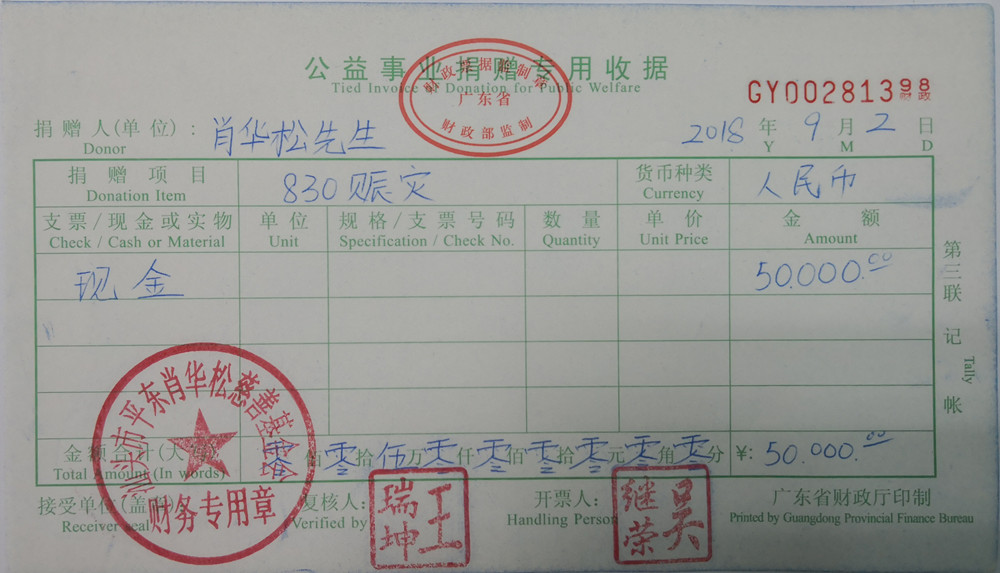 公益事业捐赠专用收据
Tied Invoice of Donation for Public Welfare
财政票据监制章
广东省
财政部监制
GY00281398
财政
捐赠人(单位): 肖华松先生
Donor
2018 年 9 月 2 日
Y M D
捐赠项目 830赈灾 货币种类 人民币
Donation Item Currency
支票/现金或实物 单位 规格/支票号码 数量 单价 金额
Check / Cash or Material Unit Specification / Check No. Quantity Unit Price Amount
现金 50.000.00
第三联 记帐
Tally
金额合计(大写) 佰零拾伍万零仟零佰零拾零元零角零分 ¥: 50.000.00
Total Amount (In words)
平东肖华松慈善基金会
财务专用章
接受单位(盖章) 复核人: 王瑞坤 开票人: 吴继荣 广东省财政厅印制
Receiver (seal) Verified by Handling Person Printed by Guangdong Provincial Finance Bureau